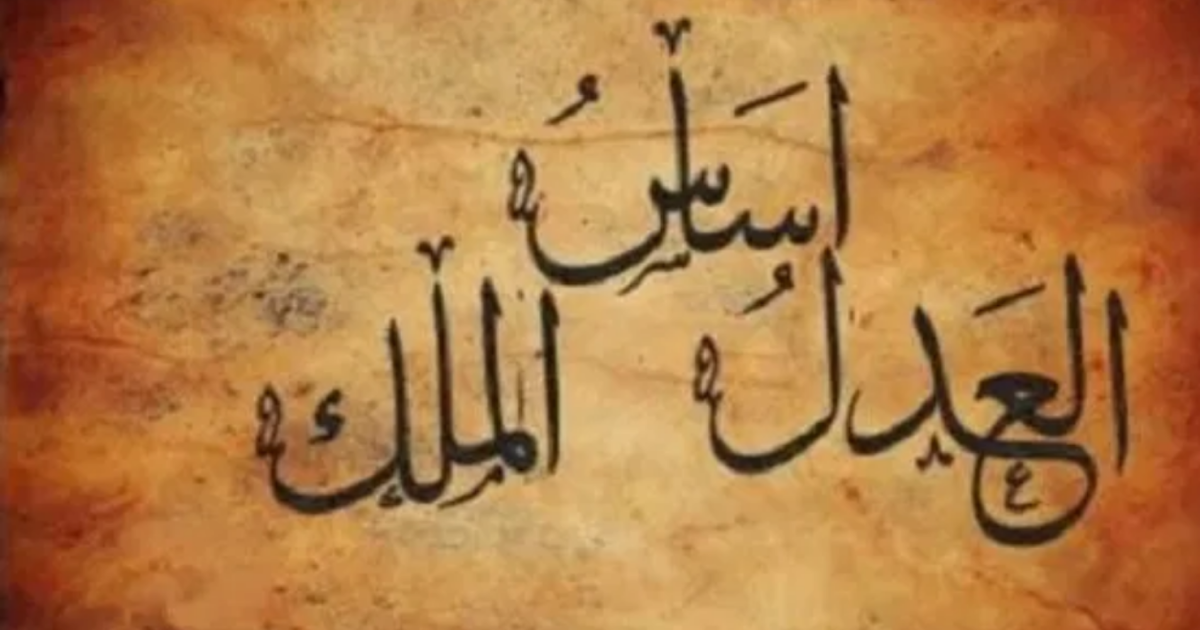 العَدلُ اَساسُ الملك